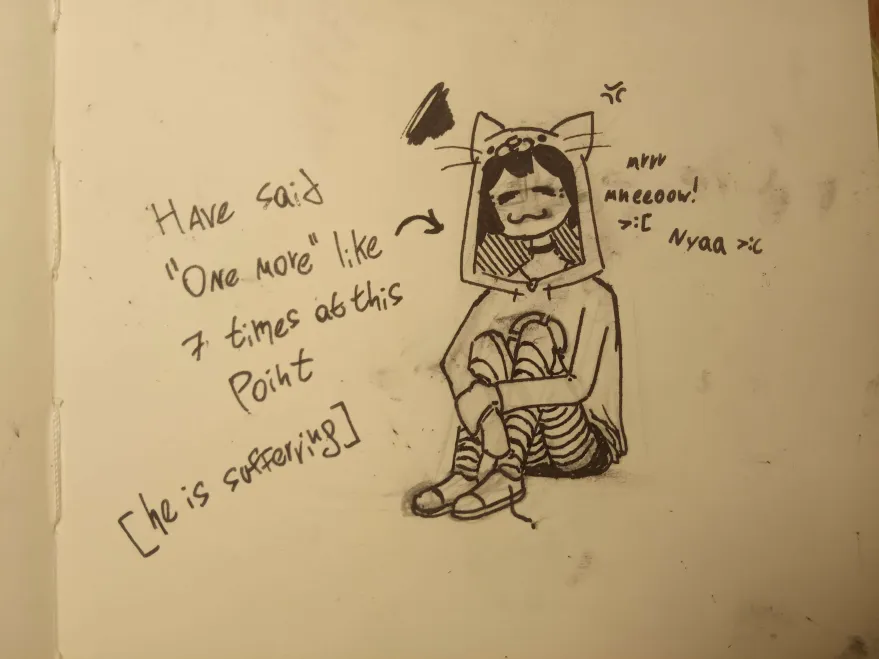 Have said
"One more" like
7 times at this
Point
[he is suffering]
mrrr
mneeoow!
>:[
Nyaa >:c